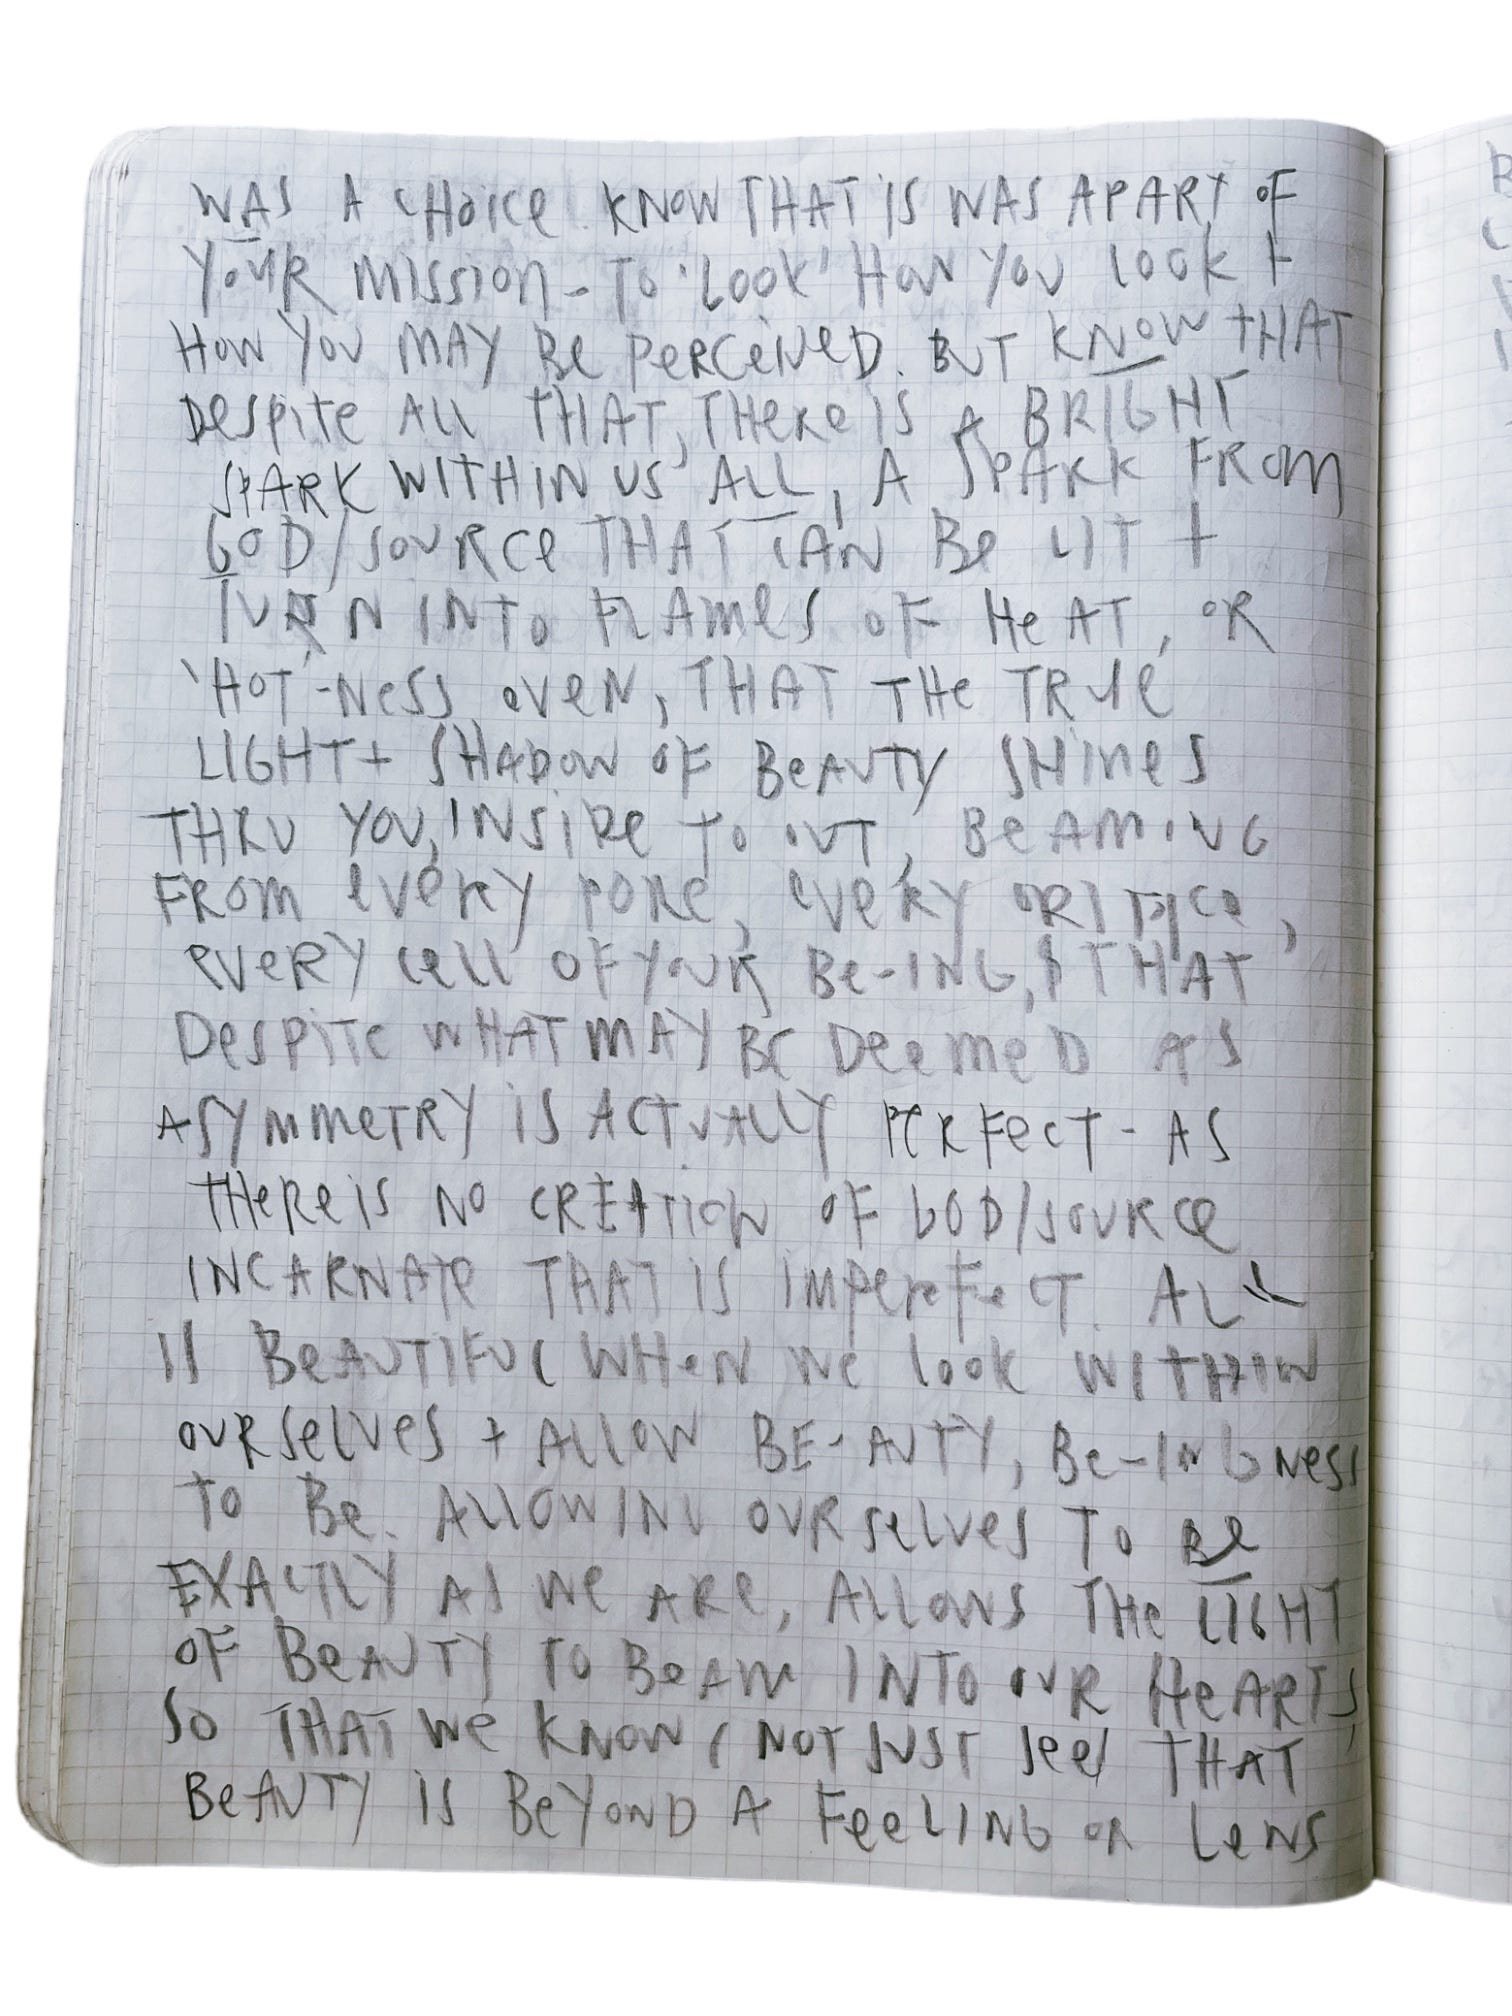 WAS A CHOICE KNOW THAT IS WAS APART OF
YOUR MISSION - TO 'LOOK' HOW YOU LOOK +
HOW YOU MAY BE PERCEIVED. BUT KNOW THAT
DESPITE ALL THAT, THERE IS A BRIGHT
SPARK WITHIN US ALL, A SPARK FROM
GOD/SOURCE THAT CAN BE LIT +
TURN INTO FLAMES OF HEAT, OR
'HOT'-NESS OVEN, THAT THE TRUE
LIGHT + SHADOW OF BEAUTY SHINES
THRU YOU, INSIDE TO OUT, BEAMING
FROM EVERY PORE, EVERY ORIFICE,
EVERY CELL OF YOUR BE-ING, $ THAT
DESPITE WHAT MAY BE DEEMED AS
ASYMMETRY IS ACTUALLY PERFECT - AS
THERE IS NO CREATION OF GOD/SOURCE
INCARNATE THAT IS IMPEREFECT. ALL
IS BEAUTIFUL WHEN WE LOOK WITHIN
OURSELVES + ALLOW BE-AUTY, BE-INGNESS
TO BE. ALLOWING OURSELVES TO BE
EXACTLY AS WE ARE, ALLOWS THE LIGHT
OF BEAUTY TO BEAM INTO OUR HEARTS,
SO THAT WE KNOW, NOT JUST SEE, THAT
BEAUTY IS BEYOND A FEELING OR LENS